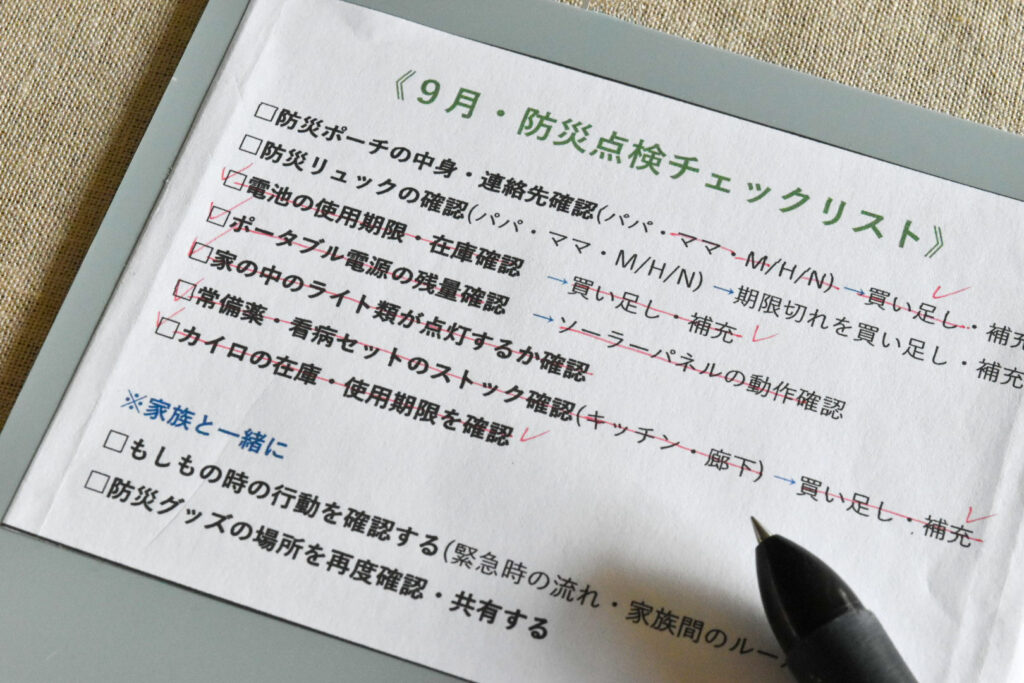 《9月・防災点検チェックリスト》
□防災ポーチの中身・連絡先確認(パパ・ママ・M/H/N) →買い足し・補充
□防災リュックの確認(パパ・ママ・M/H/N) →期限切れを買い足し・補充
□電池の使用期限・在庫確認 →買い足し・補充
□ポータブル電源の残量確認 →ソーラーパネルの動作確認
□家の中のライト類が点灯するか確認
□常備薬・看病セットのストック確認(キッチン・廊下) →買い足し・補充
□カイロの在庫・使用期限を確認
※家族と一緒に
□もしもの時の行動を確認する(緊急時の流れ・家族間のルー
□防災グッズの場所を再度確認・共有する